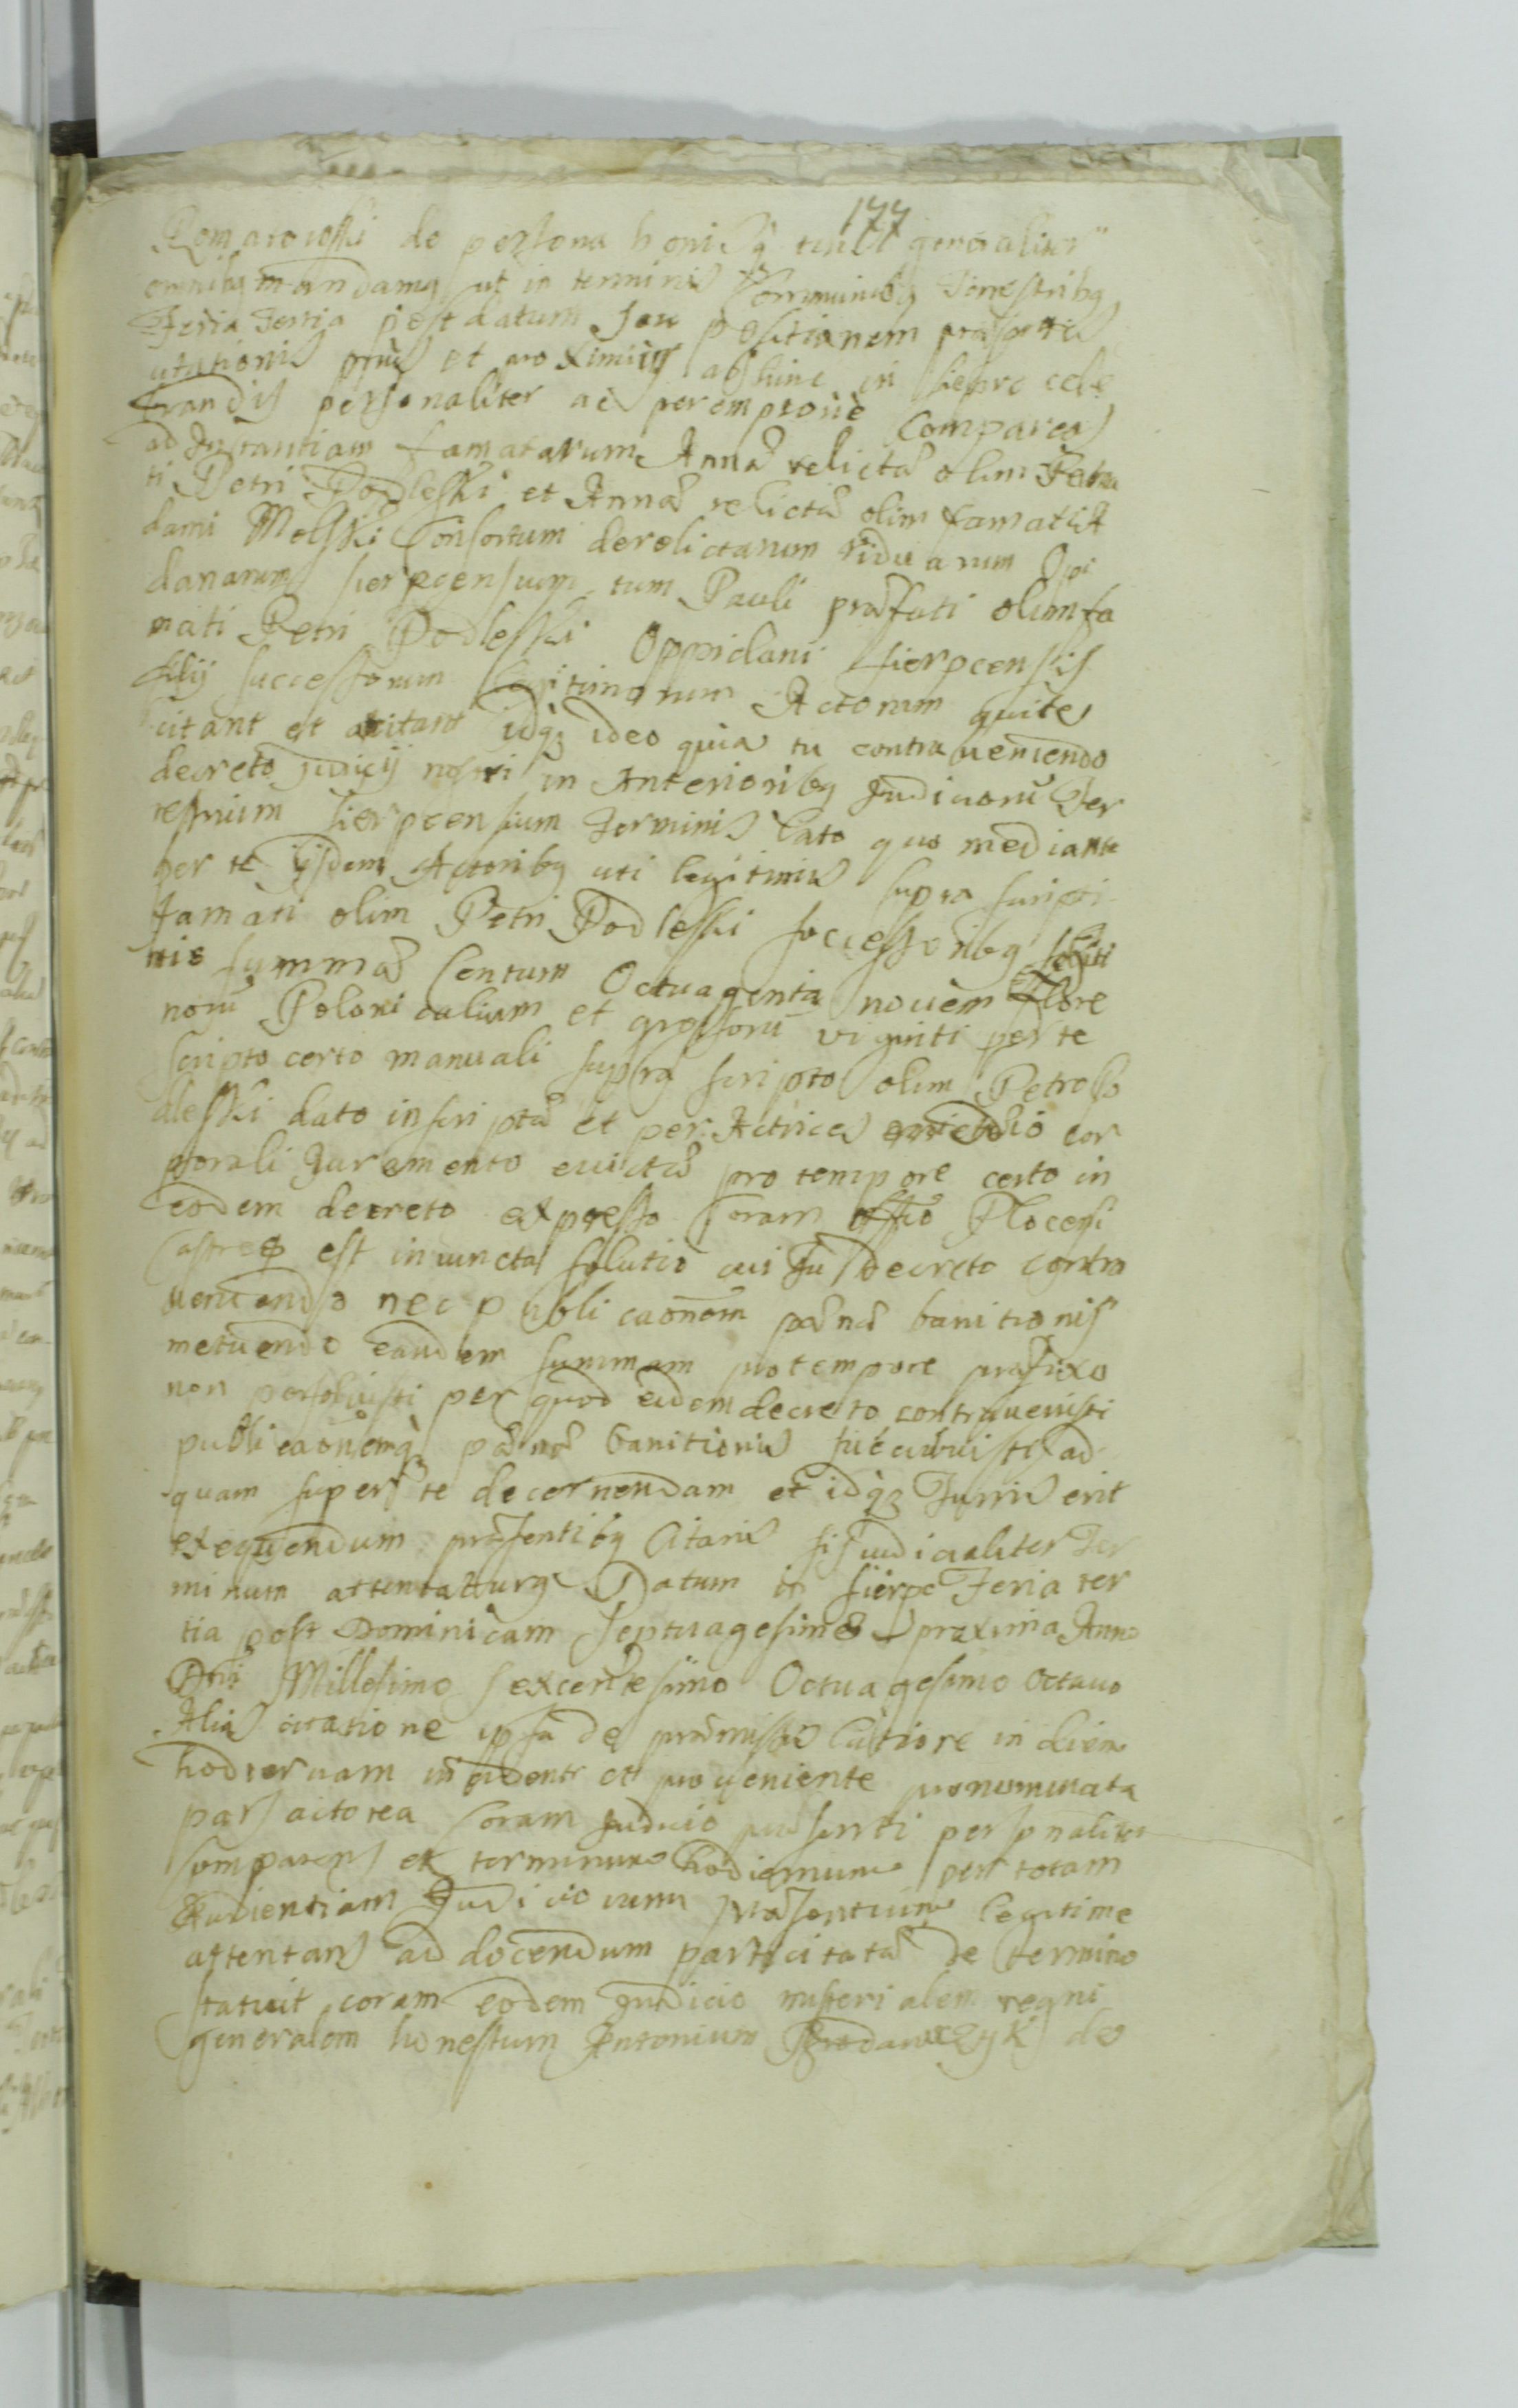 177
Komarowski de persona bonisq tuis generaliter
omnibq mandamq ut in terminis Communibq Terrestribq
Feria Tertia post datum seu positionem præsentis
citationis primis et proximis abhinc in Sierpc cele
brandis personaliter ac peremptoriè Compareas
ad Instantiam famatarum Annæ relictæ olim Fama
ti Petri Podleski et Annæ relictæ olim famati A
dami Melski Consortum derelictarum viduarum Opi
danarum sierpcensium, tum Pauli præfati olim fa
mati Petri Podleski Oppidani sierpcensis
filij successorum legitimorum Actorum qui te
citant et citant idq ideo quia tu contraveniendo
decreto judicij nostri in Anterioribq Judiciorũ Ter
restrium sierpcensium Terminis lato quo mediante
per te ijsdem Actoribq uti legitimis supra scripti
famati olim Petri Podleski soccessoribq legiti
mis summæ Centum Octuaginta novèm Flore
norũ Polonicalium et grossorũ viginti per te
scripto certo manuali supra scripto olim Petro Po
dleski dato inscriptæ et per Actrices cor
porali Juramento evictæ pro tempore certo in
eodem decreto expresso Coram offo Plocensi
Castren est iniuncta solutio cui tu decreto contra
veniendo nec publicaonem pænæ banitionis
metuendo eandem summam pro tempore præfixo
non persolvisti per quod eidem decreto contravenisti
publicaonemq pænæ banitionis succubuisti ad
quam super te decernendam et idq Juris erit
exequendum præsentibq Citaris sis judicialiter Ter
minum attentaturq Datum in sierpc Feria ter
tia post Dominicam Septuagesimæ proxima Anno
Dni Millesimo sexcentesimo Octuagesimo octavo
Alias citatione ipsa de præmissis latiore in diem
hodiernam incidente et proveniente pronominata
pars actorea Coram Judicio præsenti personaliter
Comparens et terminum hodiernum per totam
Audientiam Judiciorum præsentium legitime
attentans ad docendum parti citatæ de termino
statuit coram eodem Judicio misterialem regni
generalem honestum Antonium de